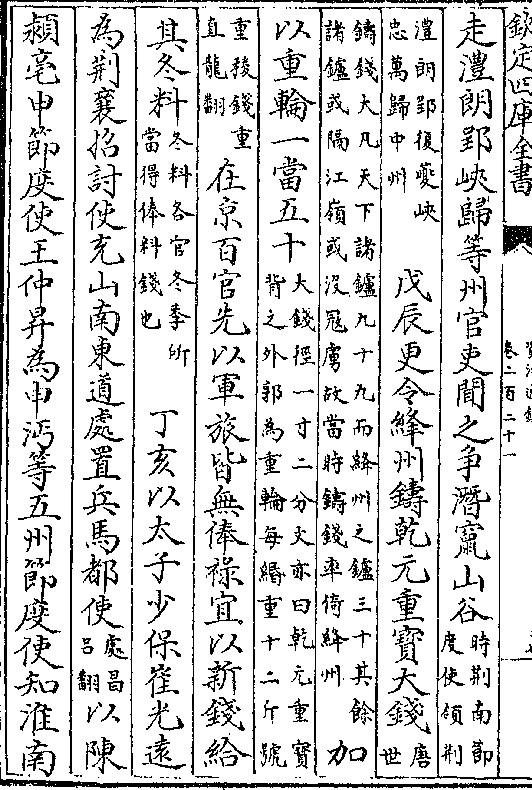 欽定四庫全書
資治通鑑
卷二百二十一
走澧朗郢峽歸等州官吏聞之爭潛竄山谷時荆南節度使領荆
澧朗郢復夔峽忠萬歸中州 戊辰更令絳州鑄乾元重寶大錢唐世
鑄錢大凡天下諸鑪九十九而絳州之鑪三十其餘諸鑪或隔江嶺或没寇虜故當時鑄錢率倚絳州 加
以重輪一當五十大錢徑一寸二分文亦曰乾元重寶背之外郭為重輪每緡重十二斤號
重稜錢重直龍翻 在京百官先以軍旅皆無俸祿宜以新錢給
其冬料冬料各官冬季所當得俸料錢也 丁亥以太子少保崔光遠
為荆襄招討使充山南東道處置兵馬都使處昌吕翻以陳
潁亳申節度使王仲昇為申沔等五州節度使知淮南